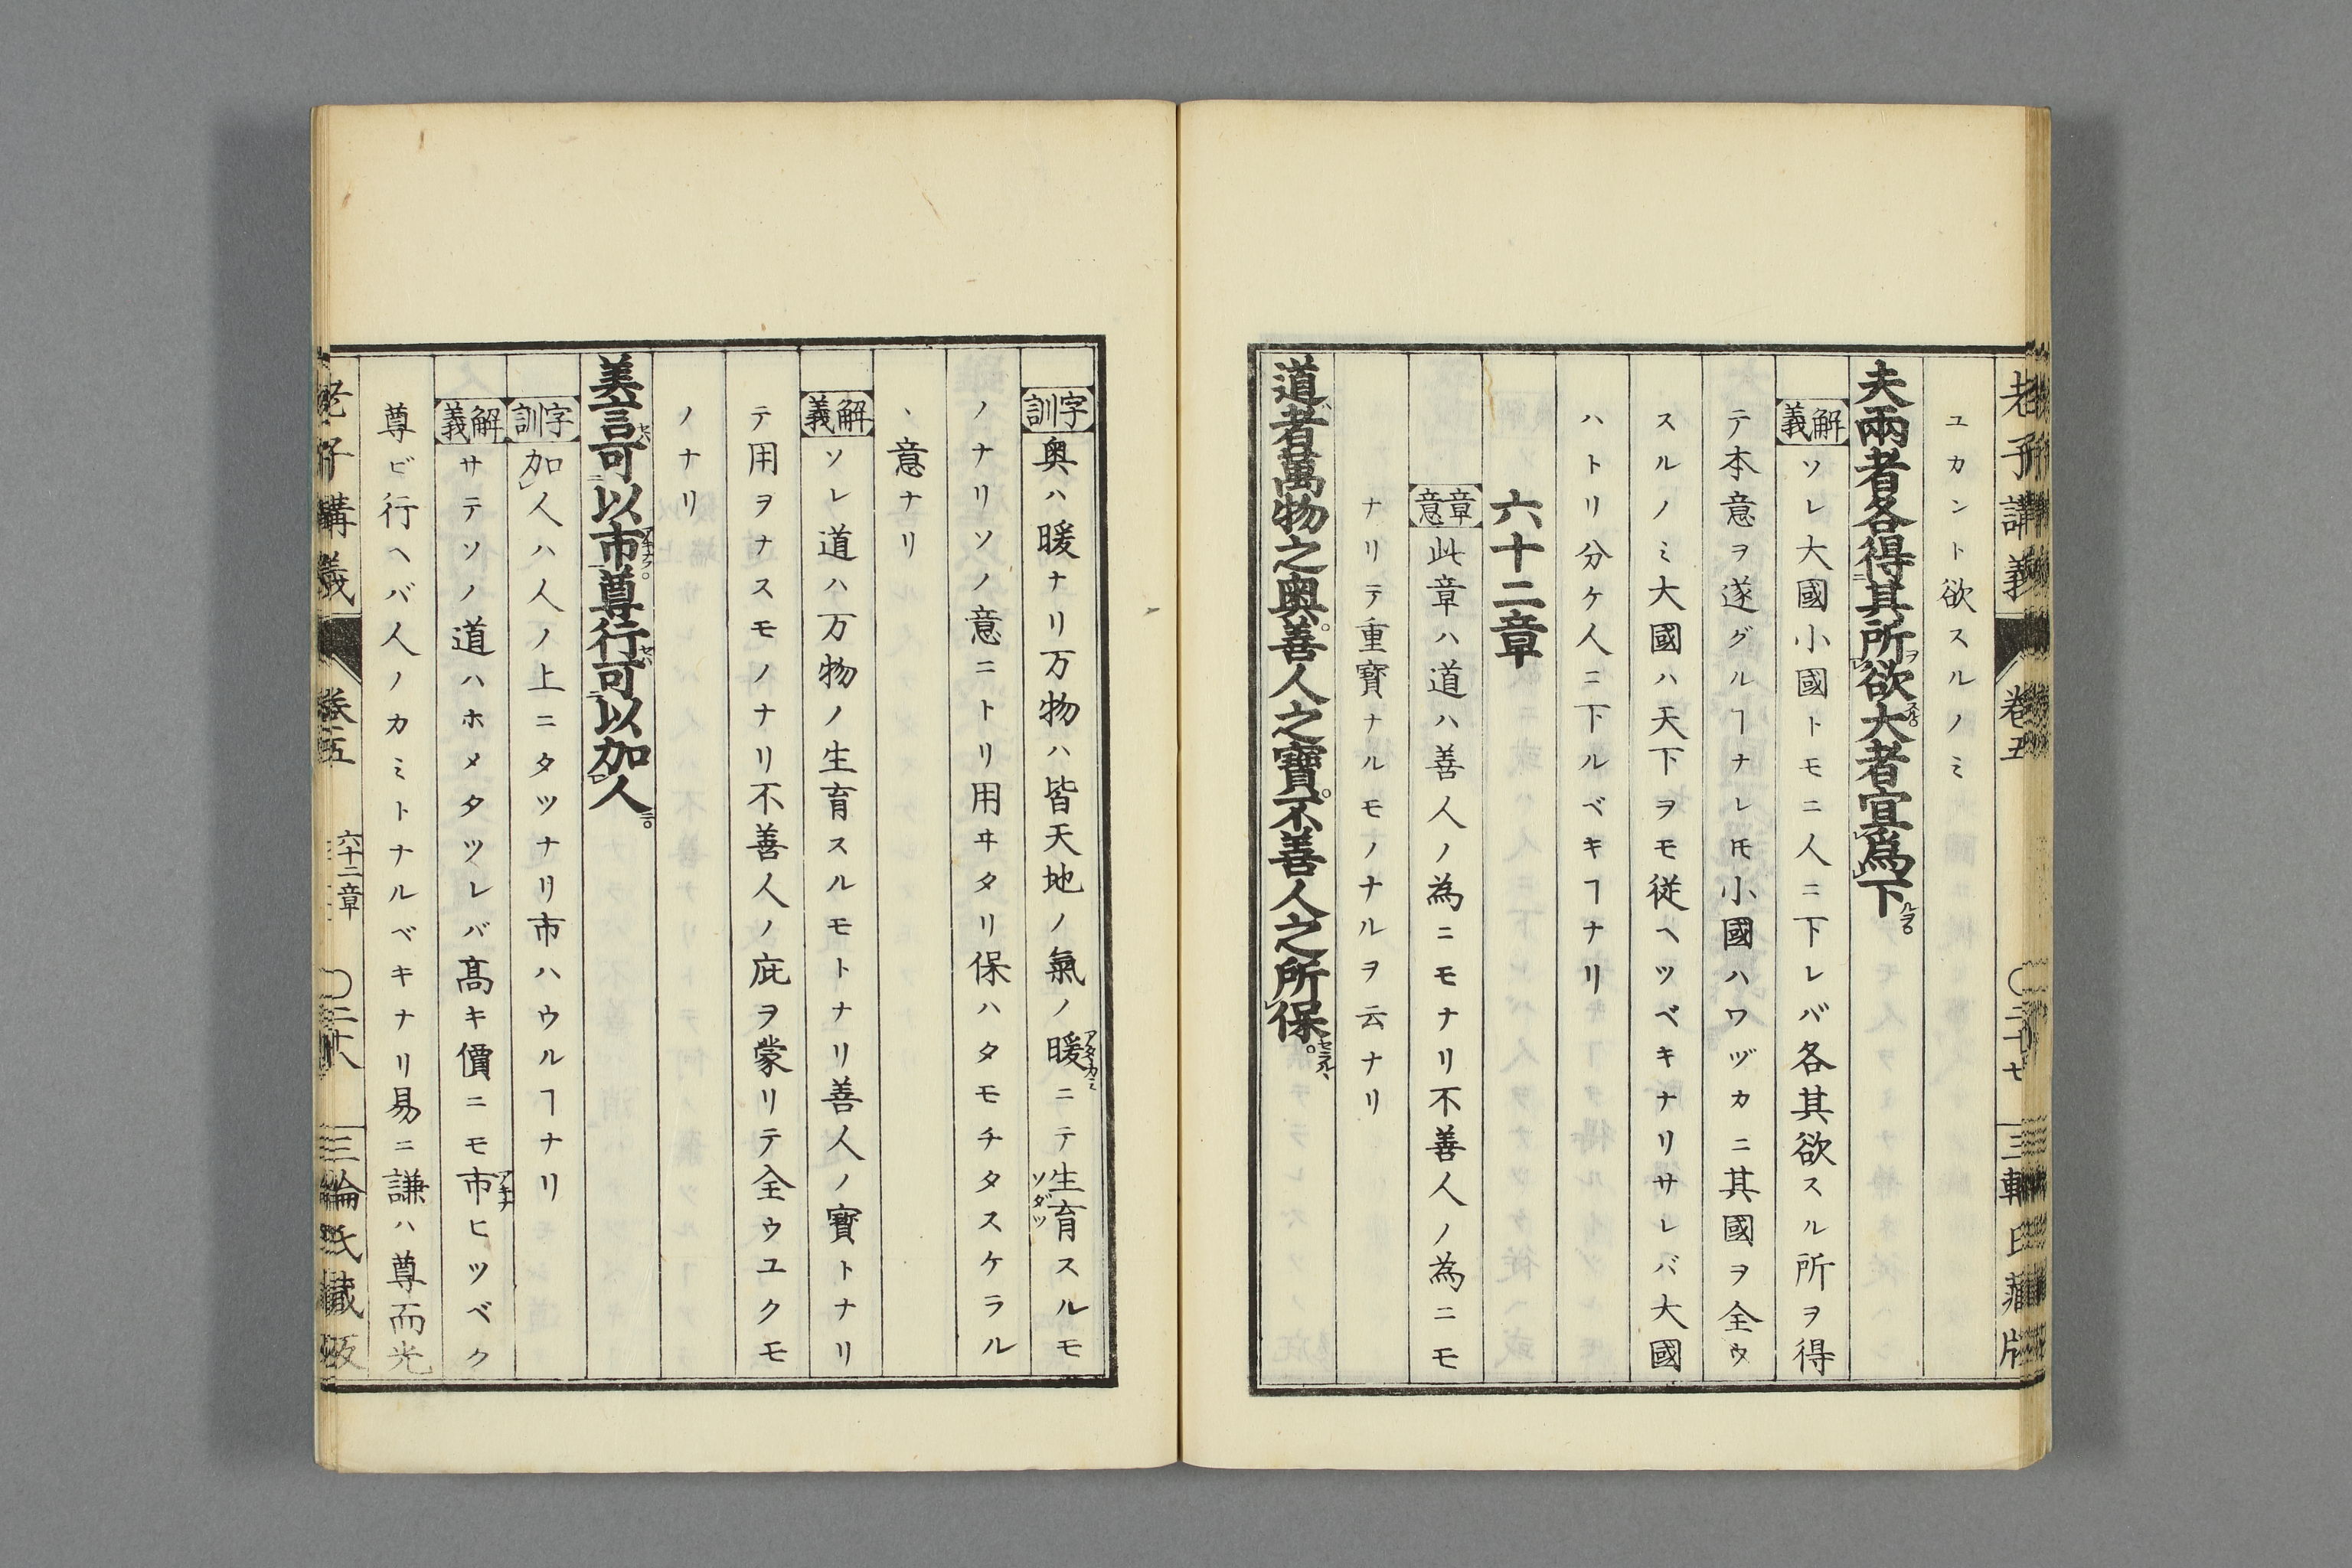 老子講義　卷五　〇三十七　三輪氏藏版
ユカント欲スルノミ
夫兩者各得其所欲大者宜爲下
解義 ソレ大國小國トモニ人ニ下レバ各其欲スル所ヲ得
テ本意ヲ遂グルヿナレ𪜈小國ハワヅカニ其國ヲ全ウ
スルノミ大國ハ天下ヲモ従ヘツベキナリサレバ大國
ハトリ分ケ人ニ下ルベキヿナリ
六十二章
章意 此章ハ道ハ善人ノ為ニモナリ不善人ノ為ニモ
ナリテ重寳ナルモノナルヲ云ナリ
道者萬物之奥。善人之寶。不善人之所保。
字訓 奥ハ暖ナリ万物ハ皆天地ノ氣ノ暖ニテ生育スルモ
ノナリソノ意ニトリ用ヰタリ保ハタモチタスケラル
ヽ意ナリ
解義 ソレ道ハ万物ノ生育スルモトナリ善人ノ寳トナリ
テ用ヲナスモノナリ不善人ノ庇ヲ蒙リテ全ウユクモ
ノナリ
美言可以市尊行可以加人
字訓 加人ハ人ノ上ニタツナリ市ハウルヿナリ
解義 サテソノ道ハホメタツレバ髙キ價ニモ市ヒツベク
尊ビ行ヘバ人ノカミトナルベキナリ易ニ謙ハ尊而光
老子講義　卷五　六十二章　〇三十八　三輪氏藏版